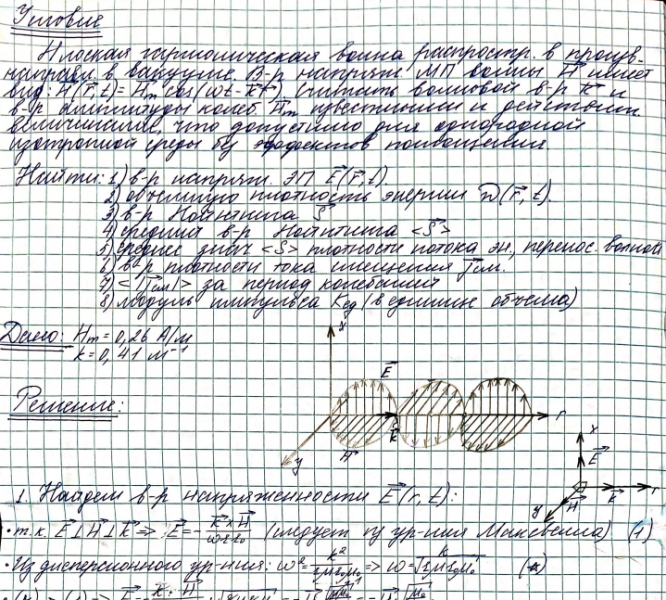 Условие
Плоская гармоническая волна распростр. в произв.
направл. в вакууме. В-р напряж. МП волны H⃗ имеет
вид: H⃗(r⃗,t) = H⃗m cos(ωt - k⃗r⃗). Считать волновой в-р k⃗ и
в-р амплитуды колеб. H⃗m известными и действит.
величинами, что допустимо для однородной
изотропной среды без эффектов поглощения.
Найти: 1) в-р напряж. ЭП E⃗(r⃗,t).
2) объемную плотность энергии w(r⃗,t).
3) в-р Пойнтинга S⃗
4) средний в-р Пойнтинга <S⃗>
5) среднее знач <S> плотности потока эн, перенос. волной
6) в-р плотности тока смещения j⃗см.
7) <|j⃗см|> за период колебаний
8) модуль импульса Kед (в единице объема)
Дано: Hm = 0,26 А/м
k = 0,41 м⁻¹
x
E⃗
r
k⃗
H⃗
y
Решение:
x
E⃗
k⃗
r
y
H⃗
1. Найдем в-р напряженности E⃗(r,t):
• т.к. E⃗⊥H⃗⊥k⃗ => E⃗ = - k⃗×H⃗/ωεε₀ (следует из ур-ния Максвелла) (1)
• Из дисперсионного ур-ния: ω² = k²/εμε₀μ₀ => ω = k/√εμε₀μ₀ (*)